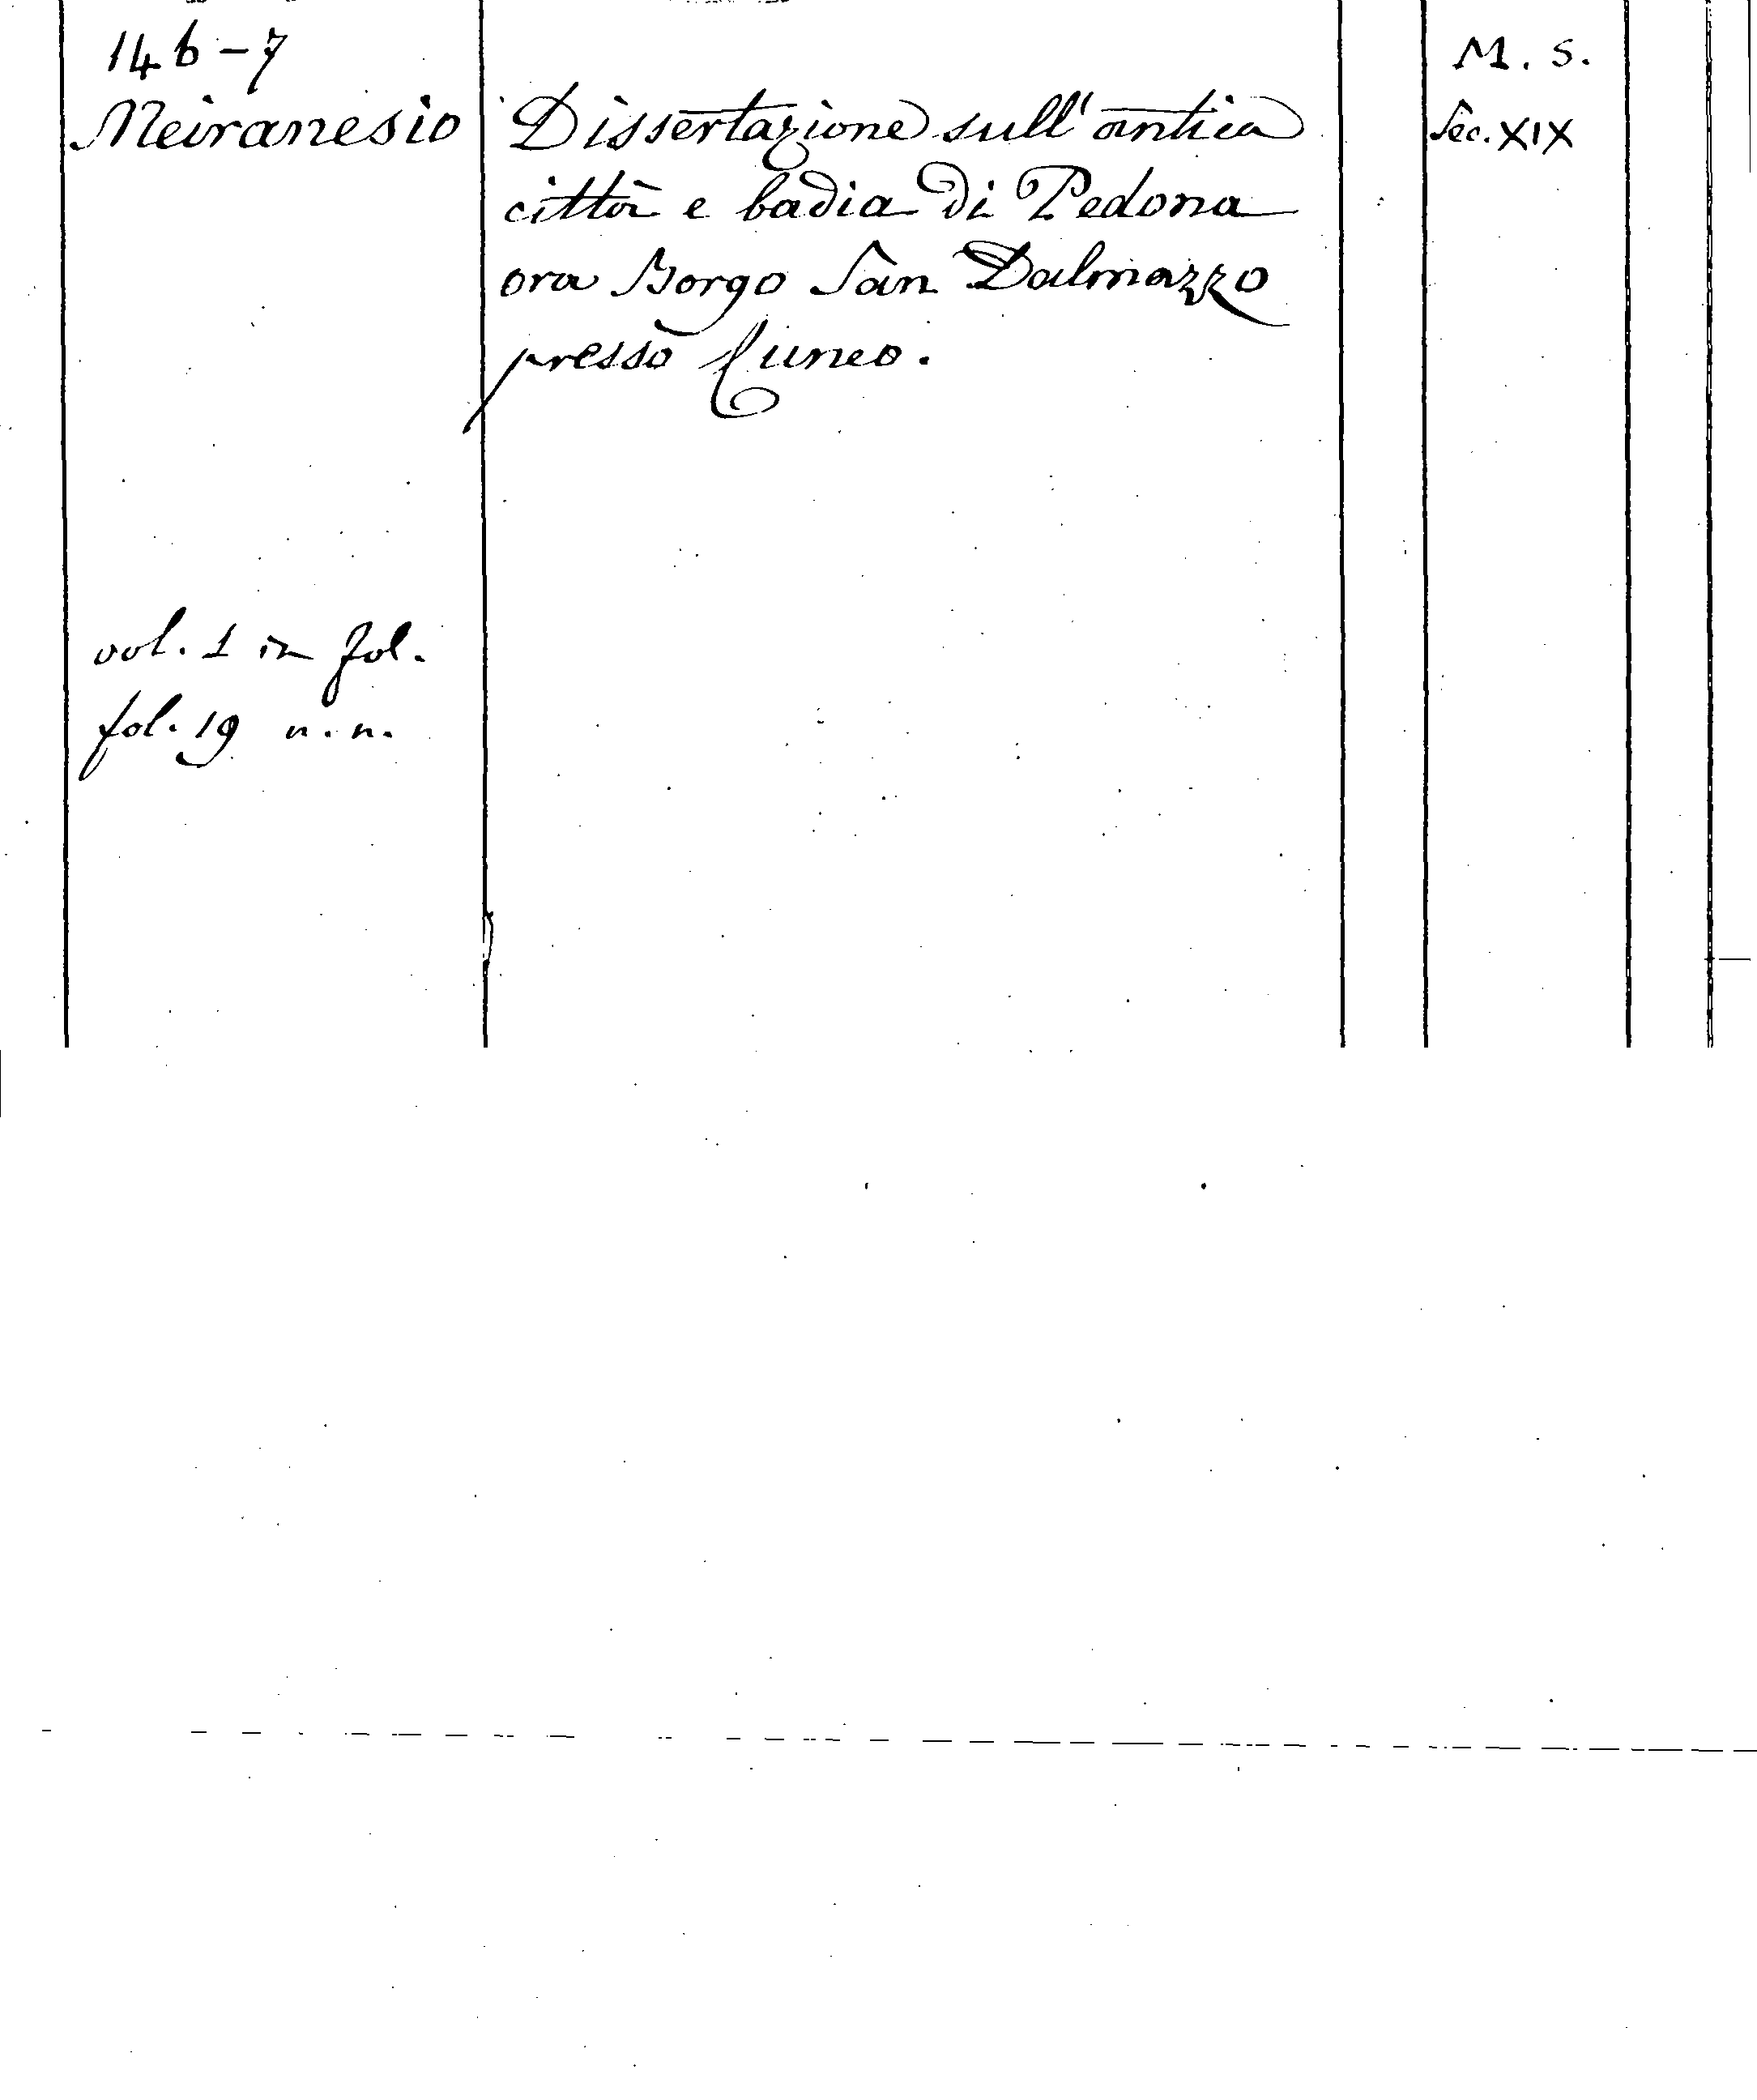 146-7
M. S.
Meiranesio Dissertazione sull'antica Sec. XIX
città e badia di Pedona
ora Borgo San Dalmazzo
presso Cuneo.
vol. 1 in fol.
fol. 19 n. n.